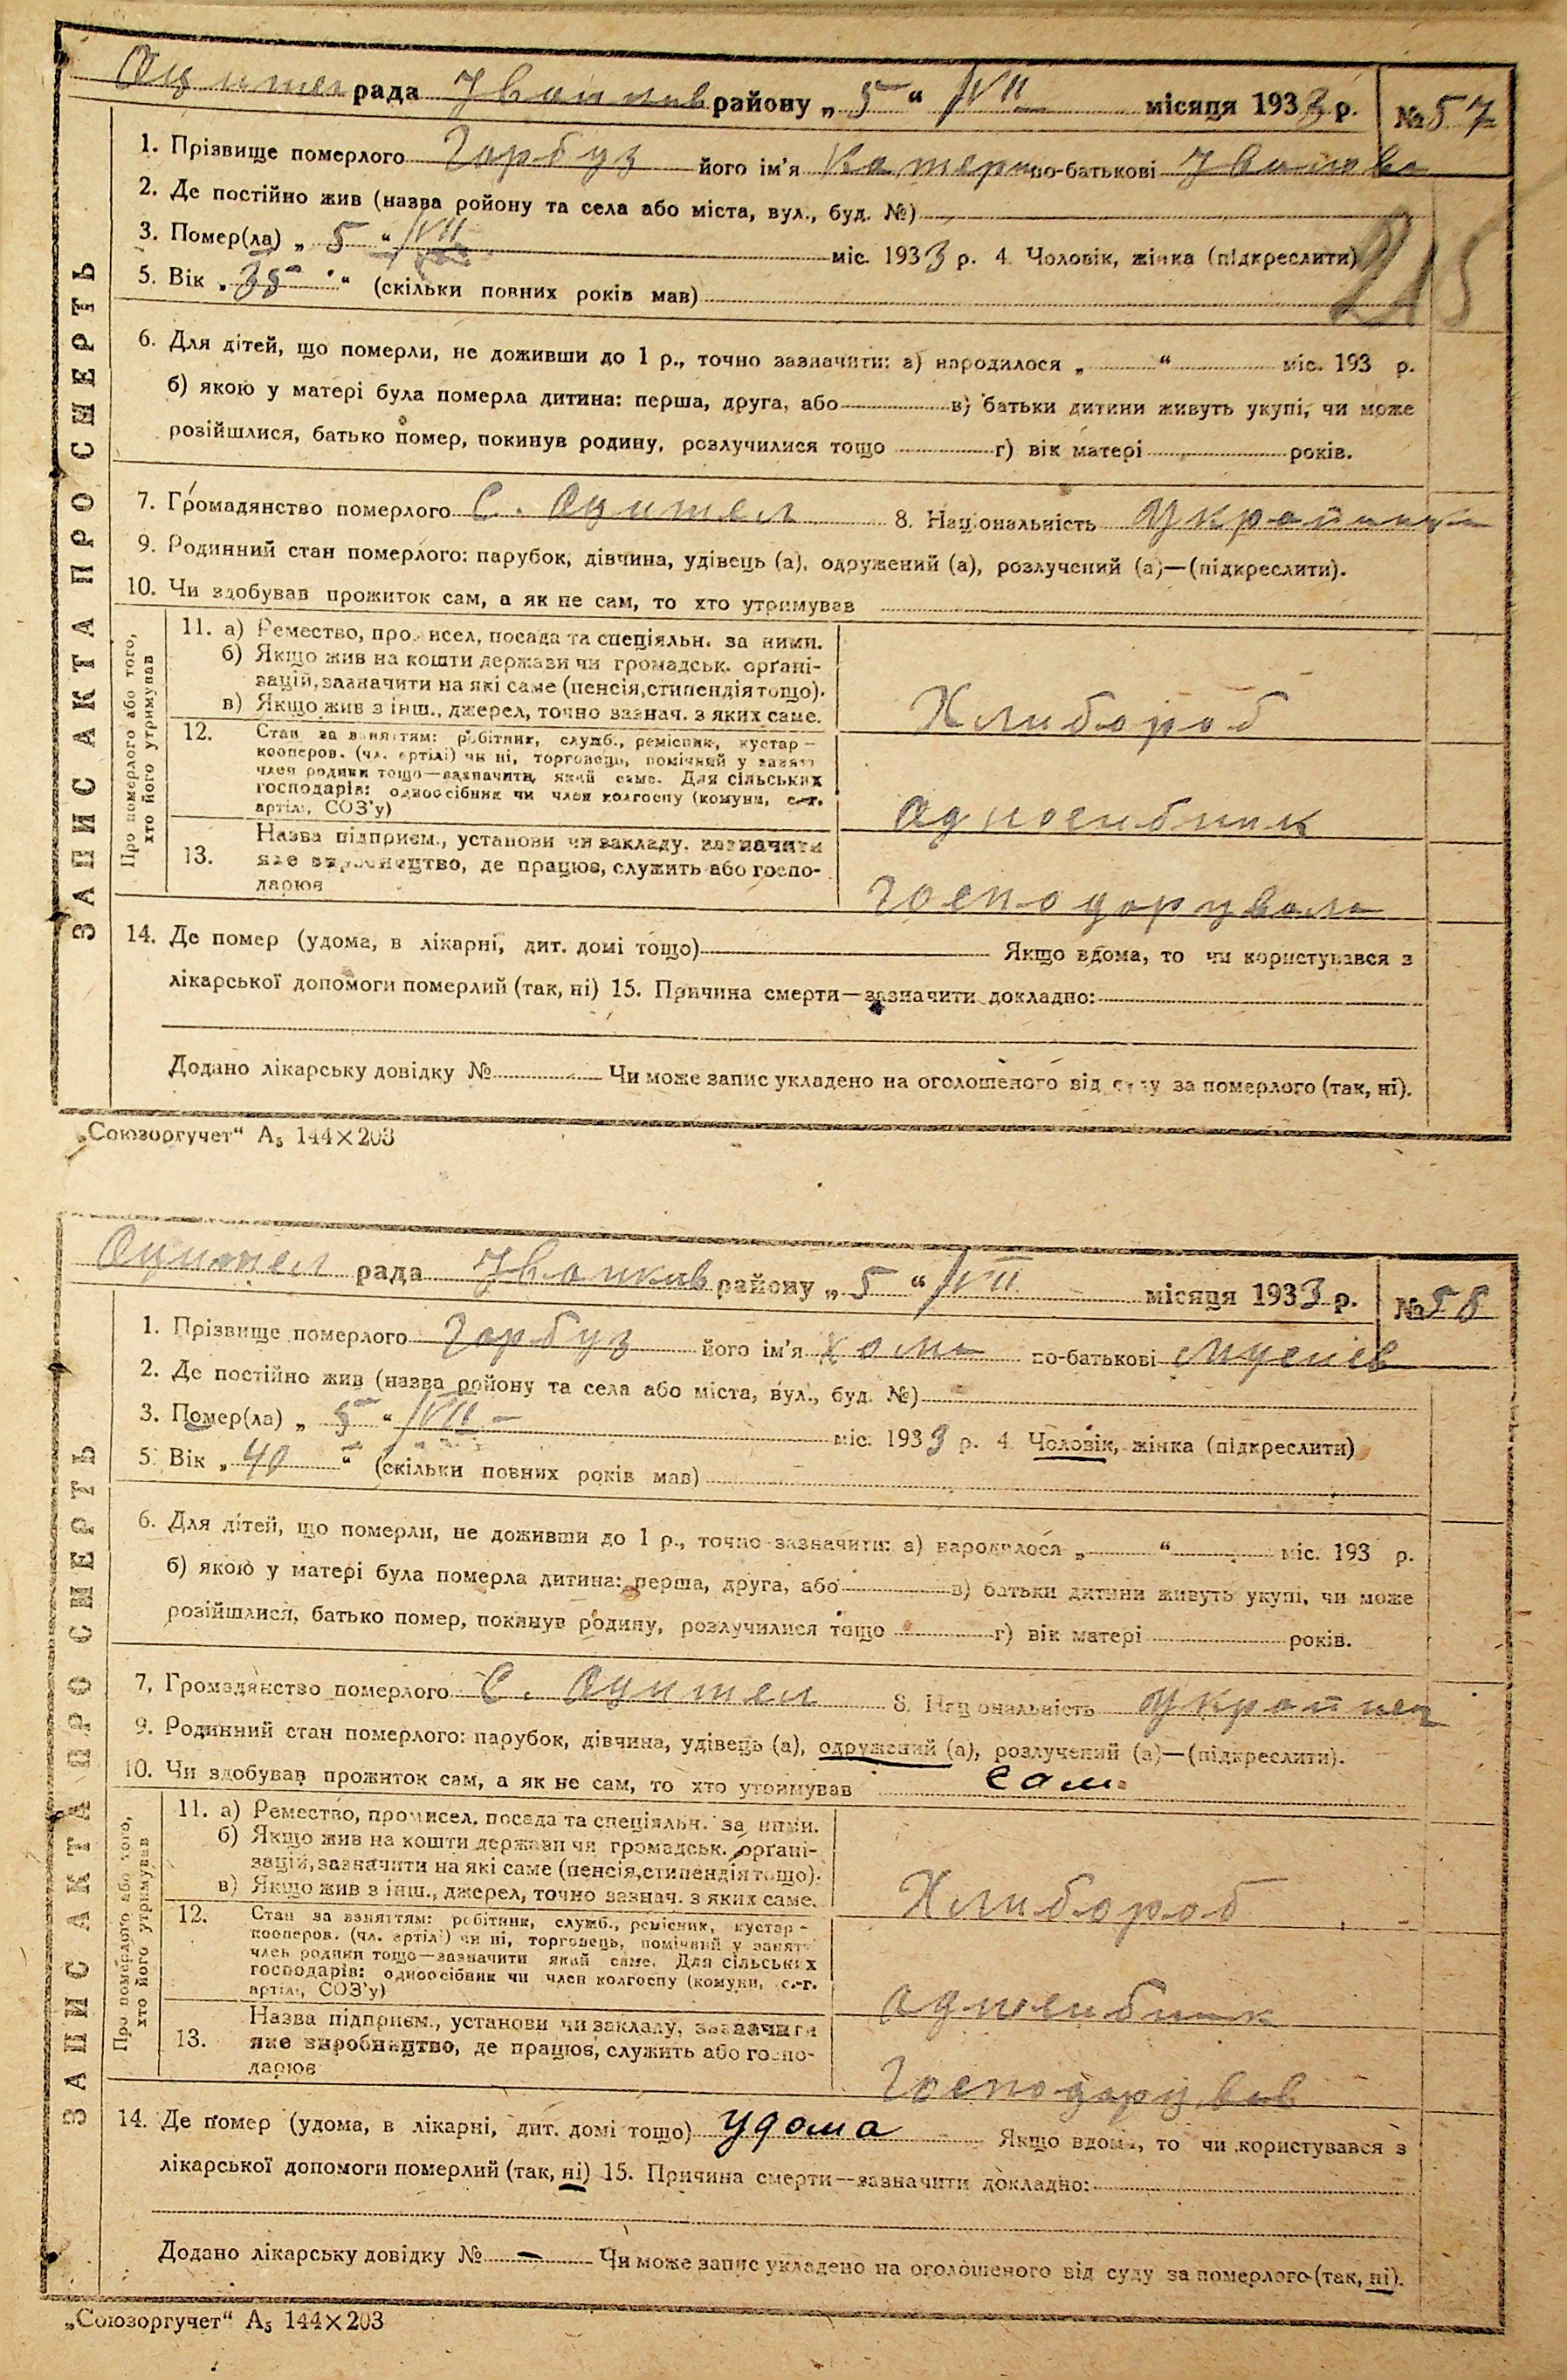 Оцител рада Іванків району „ 5 “ /VII місяця 1933 р. № 57
1. Прізвище померлого Гарбуз його ім'я Катерина по-батькові Іванова
2. Де постійно жив (назва ройону та села або міста, вул., буд. №)
3. Помер(ла) „ 5 “ /VII міс. 1933 р. 4. Чоловік, жінка (підкреслити)
215
5. Вік „ 35 “ (скільки повних років мав)
6. Для дітей, що померли, не доживши до 1 р., точно зазначити: а) народилося „ “ міс. 193 р.
б) якою у матері була померла дитина: перша, друга, або в) батьки дитини живуть укупі, чи може
розійшлися, батько помер, покинув родину, розлучилися тощо г) вік матері років.
7. Громадянство померлого С. Оцител 8. Національність Українка
9. Родинний стан померлого: парубок, дівчина, удівець (а), одружений (а), розлучений (а)—(підкреслити).
10. Чи здобував прожиток сам, а як не сам, то хто утримував
ЗАПИС АКТА ПРО СМЕРТЬ
Про померлого або того, хто його утримував
11. а) Ремество, промисел, посада та спеціяльн. за ними.
б) Якщо жив на кошти держави чи громадськ. орґані-
зацій, зазначити на які саме (пенсія, стипендія тощо).
в) Якщо жив з інш., джерел, точно зазнач. з яких саме.
Хлибороб
12. Стан за заняттям: робітник, служб., ремісник, кустар –
кооперов. (чл. артілі) чи ні, торговець, помічний у занятт
член родини тощо—зазначити який саме. Для сільських
господарів: одноосібник чи член колгоспу (комуни, с.-г.
артілі, СОЗ'у)
Адносибник
13. Назва підприєм., установи чи закладу, зазначити
яке виробництво, де працює, служить або госпо-
дарює
Господарувала
14. Де помер (удома, в лікарні, дит. домі тощо) Якщо вдома, то чи користувався з
лікарської допомоги померлий (так, ні) 15. Причина смерти—зазначити докладно:
Додано лікарську довідку № Чи може запис укладено на оголошеного від суду за померлого (так, ні).
„Союзоргучет“ А₅ 144×203
Оцител рада Іванків району „ 5 “ /VII місяця 1933 р. № 58
1. Прізвище померлого Гарбуз його ім'я Хома по-батькові Мусиів
2. Де постійно жив (назва ройону та села або міста, вул., буд. №)
3. Помер(ла) „ 5 “ /VII – міс. 1933 р. 4. Чоловік, жінка (підкреслити)
5. Вік „ 40 “ (скільки повних років мав)
6. Для дітей, що померли, не доживши до 1 р., точно зазначити: а) народилося „ “ міс. 193 р.
б) якою у матері була померла дитина: перша, друга, або в) батьки дитини живуть укупі, чи може
розійшлися, батько помер, покинув родину, розлучилися тощо г) вік матері років.
7. Громадянство померлого С. Оцител 8. Національність Украинец
9. Родинний стан померлого: парубок, дівчина, удівець (а), одружений (а), розлучений (а)—(підкреслити).
10. Чи здобував прожиток сам, а як не сам, то хто утримував сам.
ЗАПИС АКТА ПРО СМЕРТЬ
Про померлого або того, хто його утримував
11. а) Ремество, промисел, посада та спеціяльн. за ними.
б) Якщо жив на кошти держави чи громадськ. орґані-
зацій, зазначити на які саме (пенсія, стипендія тощо).
в) Якщо жив з інш., джерел, точно зазнач. з яких саме.
Хлибороб
12. Стан за заняттям: робітник, служб., ремісник, кустар –
кооперов. (чл. артілі) чи ні, торговець, помічний у занятт
член родини тощо—зазначити який саме. Для сільських
господарів: одноосібник чи член колгоспу (комуни, с.-г.
артілі, СОЗ'у)
адносибник
13. Назва підприєм., установи чи закладу, зазначити
яке виробництво, де працює, служить або госпо-
дарює
Господарував
14. Де помер (удома, в лікарні, дит. домі тощо) удома Якщо вдома, то чи користувався з
лікарської допомоги померлий (так, ні) 15. Причина смерти—зазначити докладно:
Додано лікарську довідку № – Чи може запис укладено на оголошеного від суду за померлого (так, ні).
„Союзоргучет“ А₅ 144×203